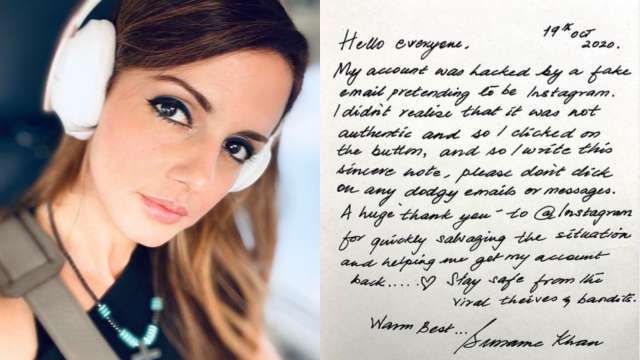 19th Oct
2020.
Hello everyone.
My account was hacked by a fake
email pretending to be Instagram.
I didn't realise that it was not
authentic and so I clicked on
the button, and so I write this
sincere note. please don't click
on any dodgy emails or messages.
A huge "thank you" to @Instagram
for quickly salvaging the situation
and helping me get my account
back.....♡ Stay safe from the
viral theives & bandits.
Warm Best...
Sussanne Khan